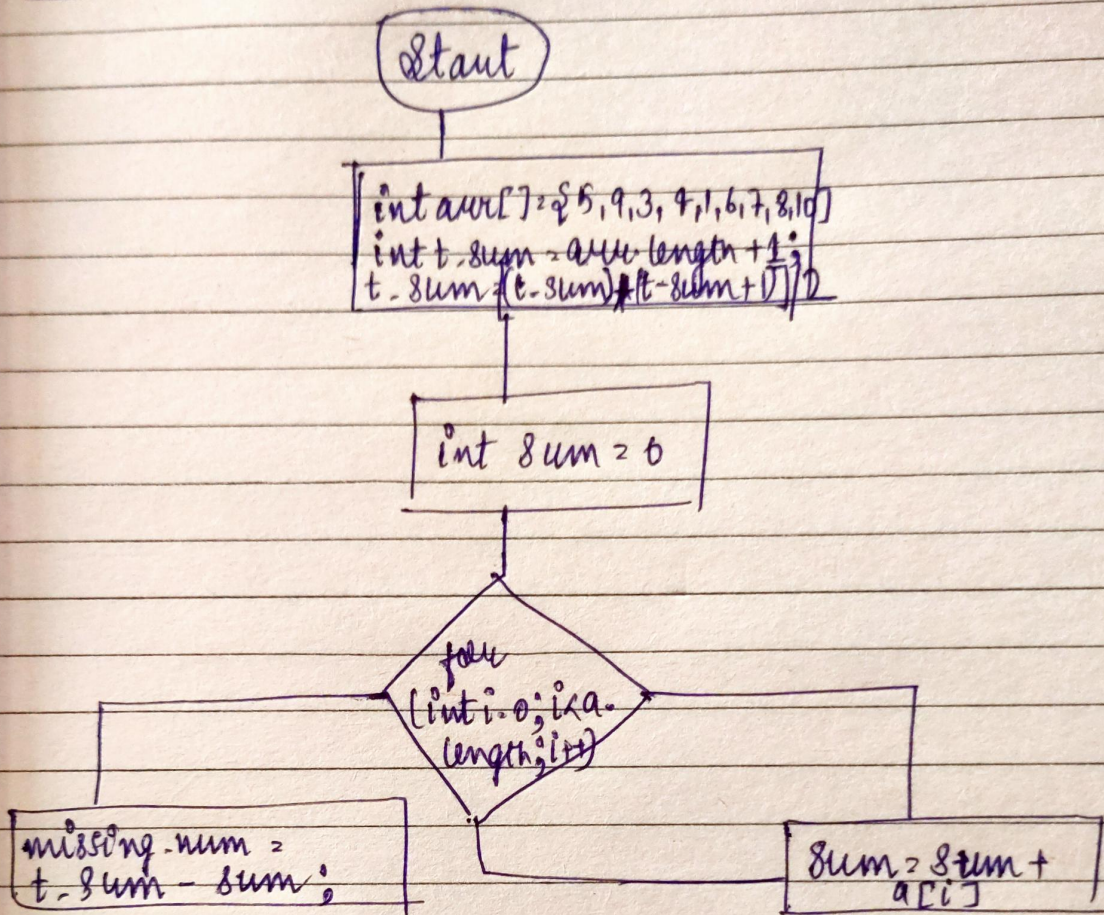 Start
int arr[]={5,9,3,4,1,6,7,8,10}
int t_sum=arr.length+1;
t_sum=(t_sum)*(t_sum+1)/2
int sum=0
for
(int i=0;i<a.
length;i++)
missing_num=
t_sum-sum;
sum=sum+
a[i]